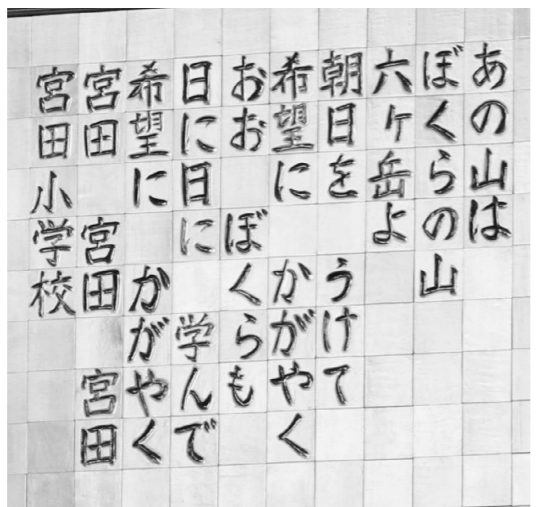 あの山は
ぼくらの山
六ヶ岳よ
朝日を うけて
希望に かがやく
おお ぼくらも
日に日に 学んで
希望に かがやく
宮田 宮田 宮田
宮田小学校